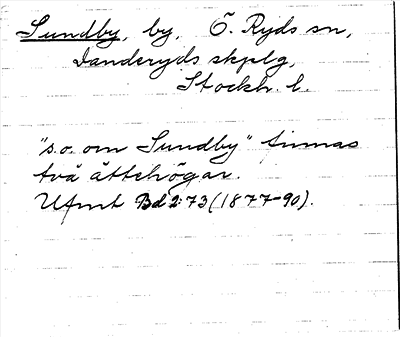 Sundby, by, Ö. Ryds sn,
Danderyds skplg,
Stockh. l.
"s.o. om Sundby" finnas
två ättehögar.
UFmt Bd 2:73 (1877-90).